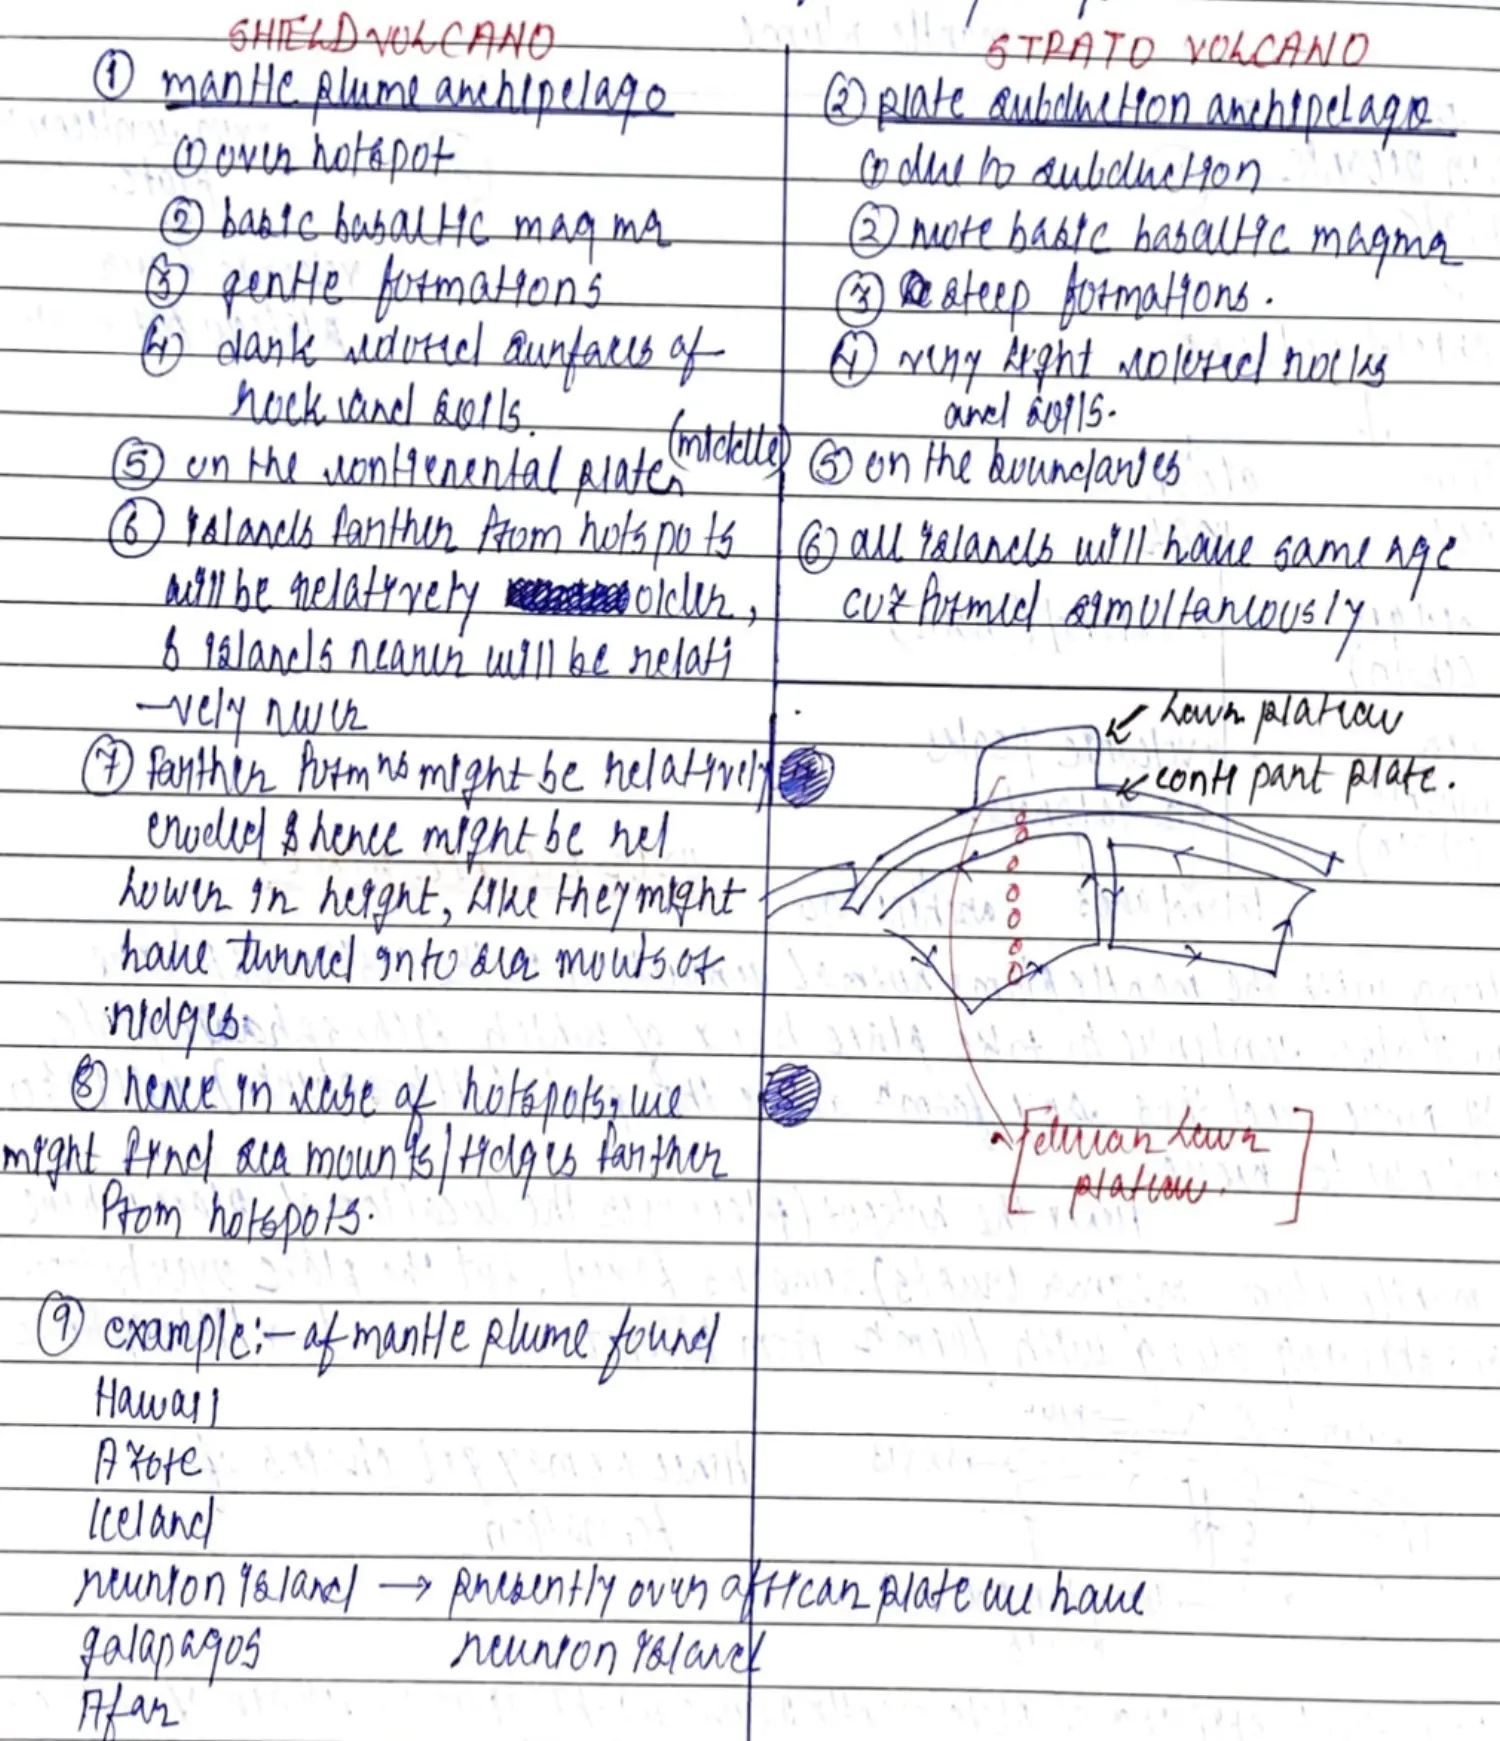 SHIELD VOLCANO
① mantle plume archipelago
① over hotspot
② basic basaltic magma
③ gentle formations
④ dark colored surfaces of
rock and soils.
⑤ on the continental plate (middle)
⑥ islands farther from hotspots
will be relatively older,
& islands nearer will be relati
-vely newer
⑦ farther formns might be relatively
eroded & hence might be rel
lower in height, like they might
have turned into sea mouts or
ridges.
⑧ hence in case of hotspots, we
might find sea mounts/ridges farther
from hotspots.
⑨ example:- of mantle plume found
Hawaii
Azore
Iceland
reunion island → presently over african plate we have
reunion island
galapagos
Afar
STRATO VOLCANO
② plate subduction archipelago
① due to subduction
② more basic basaltic magma
③ steep formations.
④ very light colored rocks
and soils.
⑤ on the boundaries
⑥ all islands will have same age
cuz formed simultaneously
lava plateau
conti part plate.
lava
plateau.